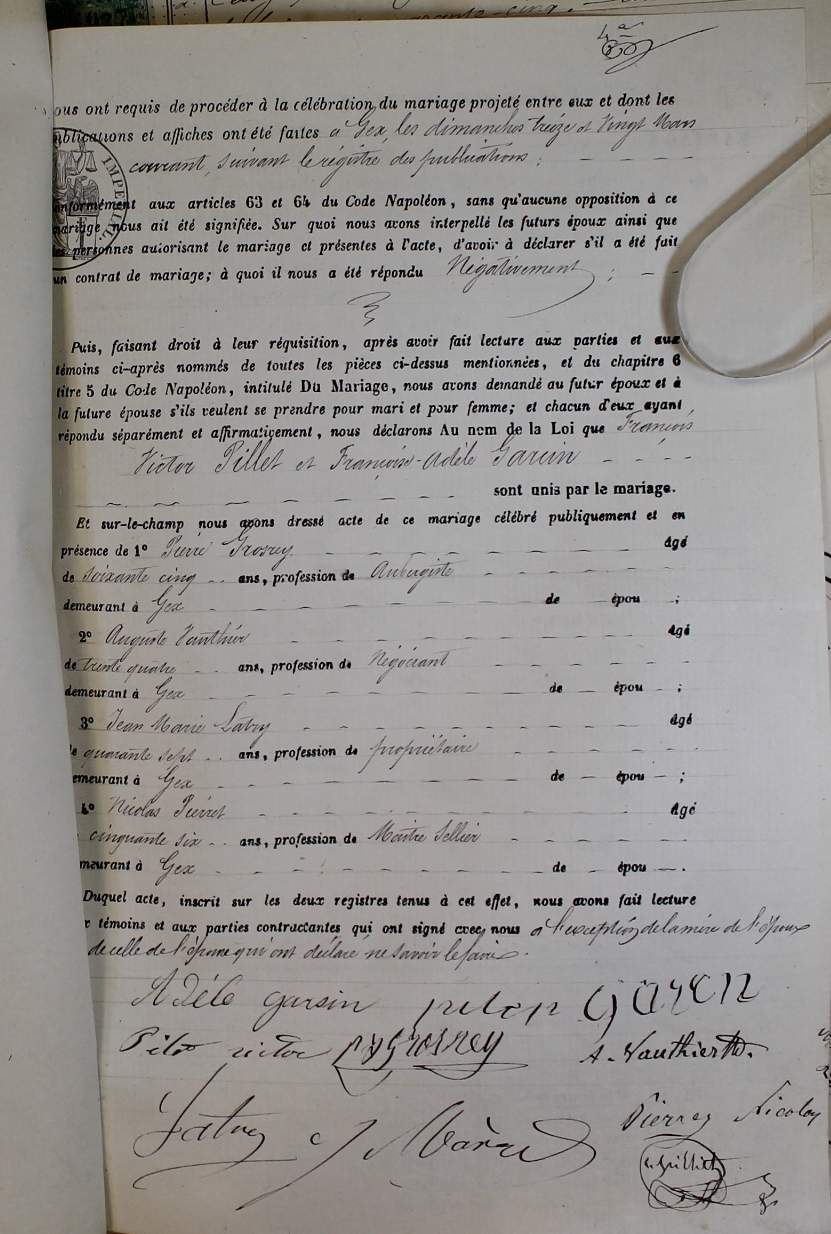 ous ont requis de procéder à la célébration du mariage projeté entre eux et dont les
blications et affiches ont été faites à Gex, les dimanches treize et Vingt Mars
courant, suivant le régistre des publications;
onformément aux articles 63 et 64 du Code Napoléon, sans qu'aucune opposition à ce
mariage nous ait été signifiée. Sur quoi nous avons interpellé les futurs époux ainsi que
les personnes autorisant le mariage et présentes à l'acte, d'avoir à déclarer s'il a été fait
un contrat de mariage; à quoi il nous a été répondu Négativement;
IMPÉRIAL
Puis, faisant droit à leur réquisition, après avoir fait lecture aux parties et aux
témoins ci-après nommés de toutes les pièces ci-dessus mentionnées, et du chapitre 6
titre 5 du Code Napoléon, intitulé Du Mariage, nous avons demandé au futur époux et à
la future épouse s'ils veulent se prendre pour mari et pour femme; et chacun d'eux ayant
répondu séparément et affirmativement, nous déclarons Au nom de la Loi que François
Victor Pillet et Françoise-Adèle Garcin
sont unis par le mariage.
Et sur-le-champ nous avons dressé acte de ce mariage célébré publiquement et en
présence de 1º Pierre Grosrey âgé
de soixante cinq ans, profession de Aubergiste
demeurant à Gex de épou ;
2º Auguste Vauthier âgé
de trente quatre ans, profession de Négociant
demeurant à Gex de épou ;
3º Jean Marie âgé
de quarante sept ans, profession de propriétaire
emeurant à Gex de épou ;
4º Nicolas Pierret âgé
cinquante six ans, profession de Maître Sellier
meurant à Gex de épou .
Duquel acte, inscrit sur les deux registres tenus à cet effet, nous avons fait lecture
x témoins et aux parties contractantes qui ont signé avec nous à l'exception de la mère de l'époux
de celle de l'épouse qui ont déclaré ne savoir le faire.
Adèle garsin
victor Grosrey A. Vauthier
Nicolas